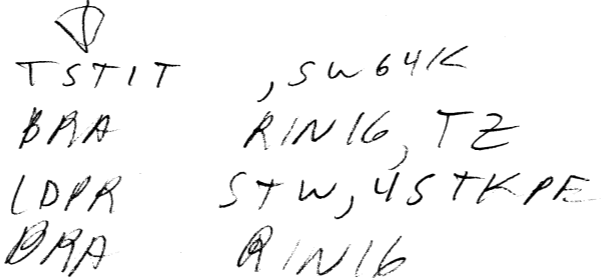 TSTIT , SW64K
BRA RIN16, TZ
LDPR STW, 4STKPE
BRA RIN16